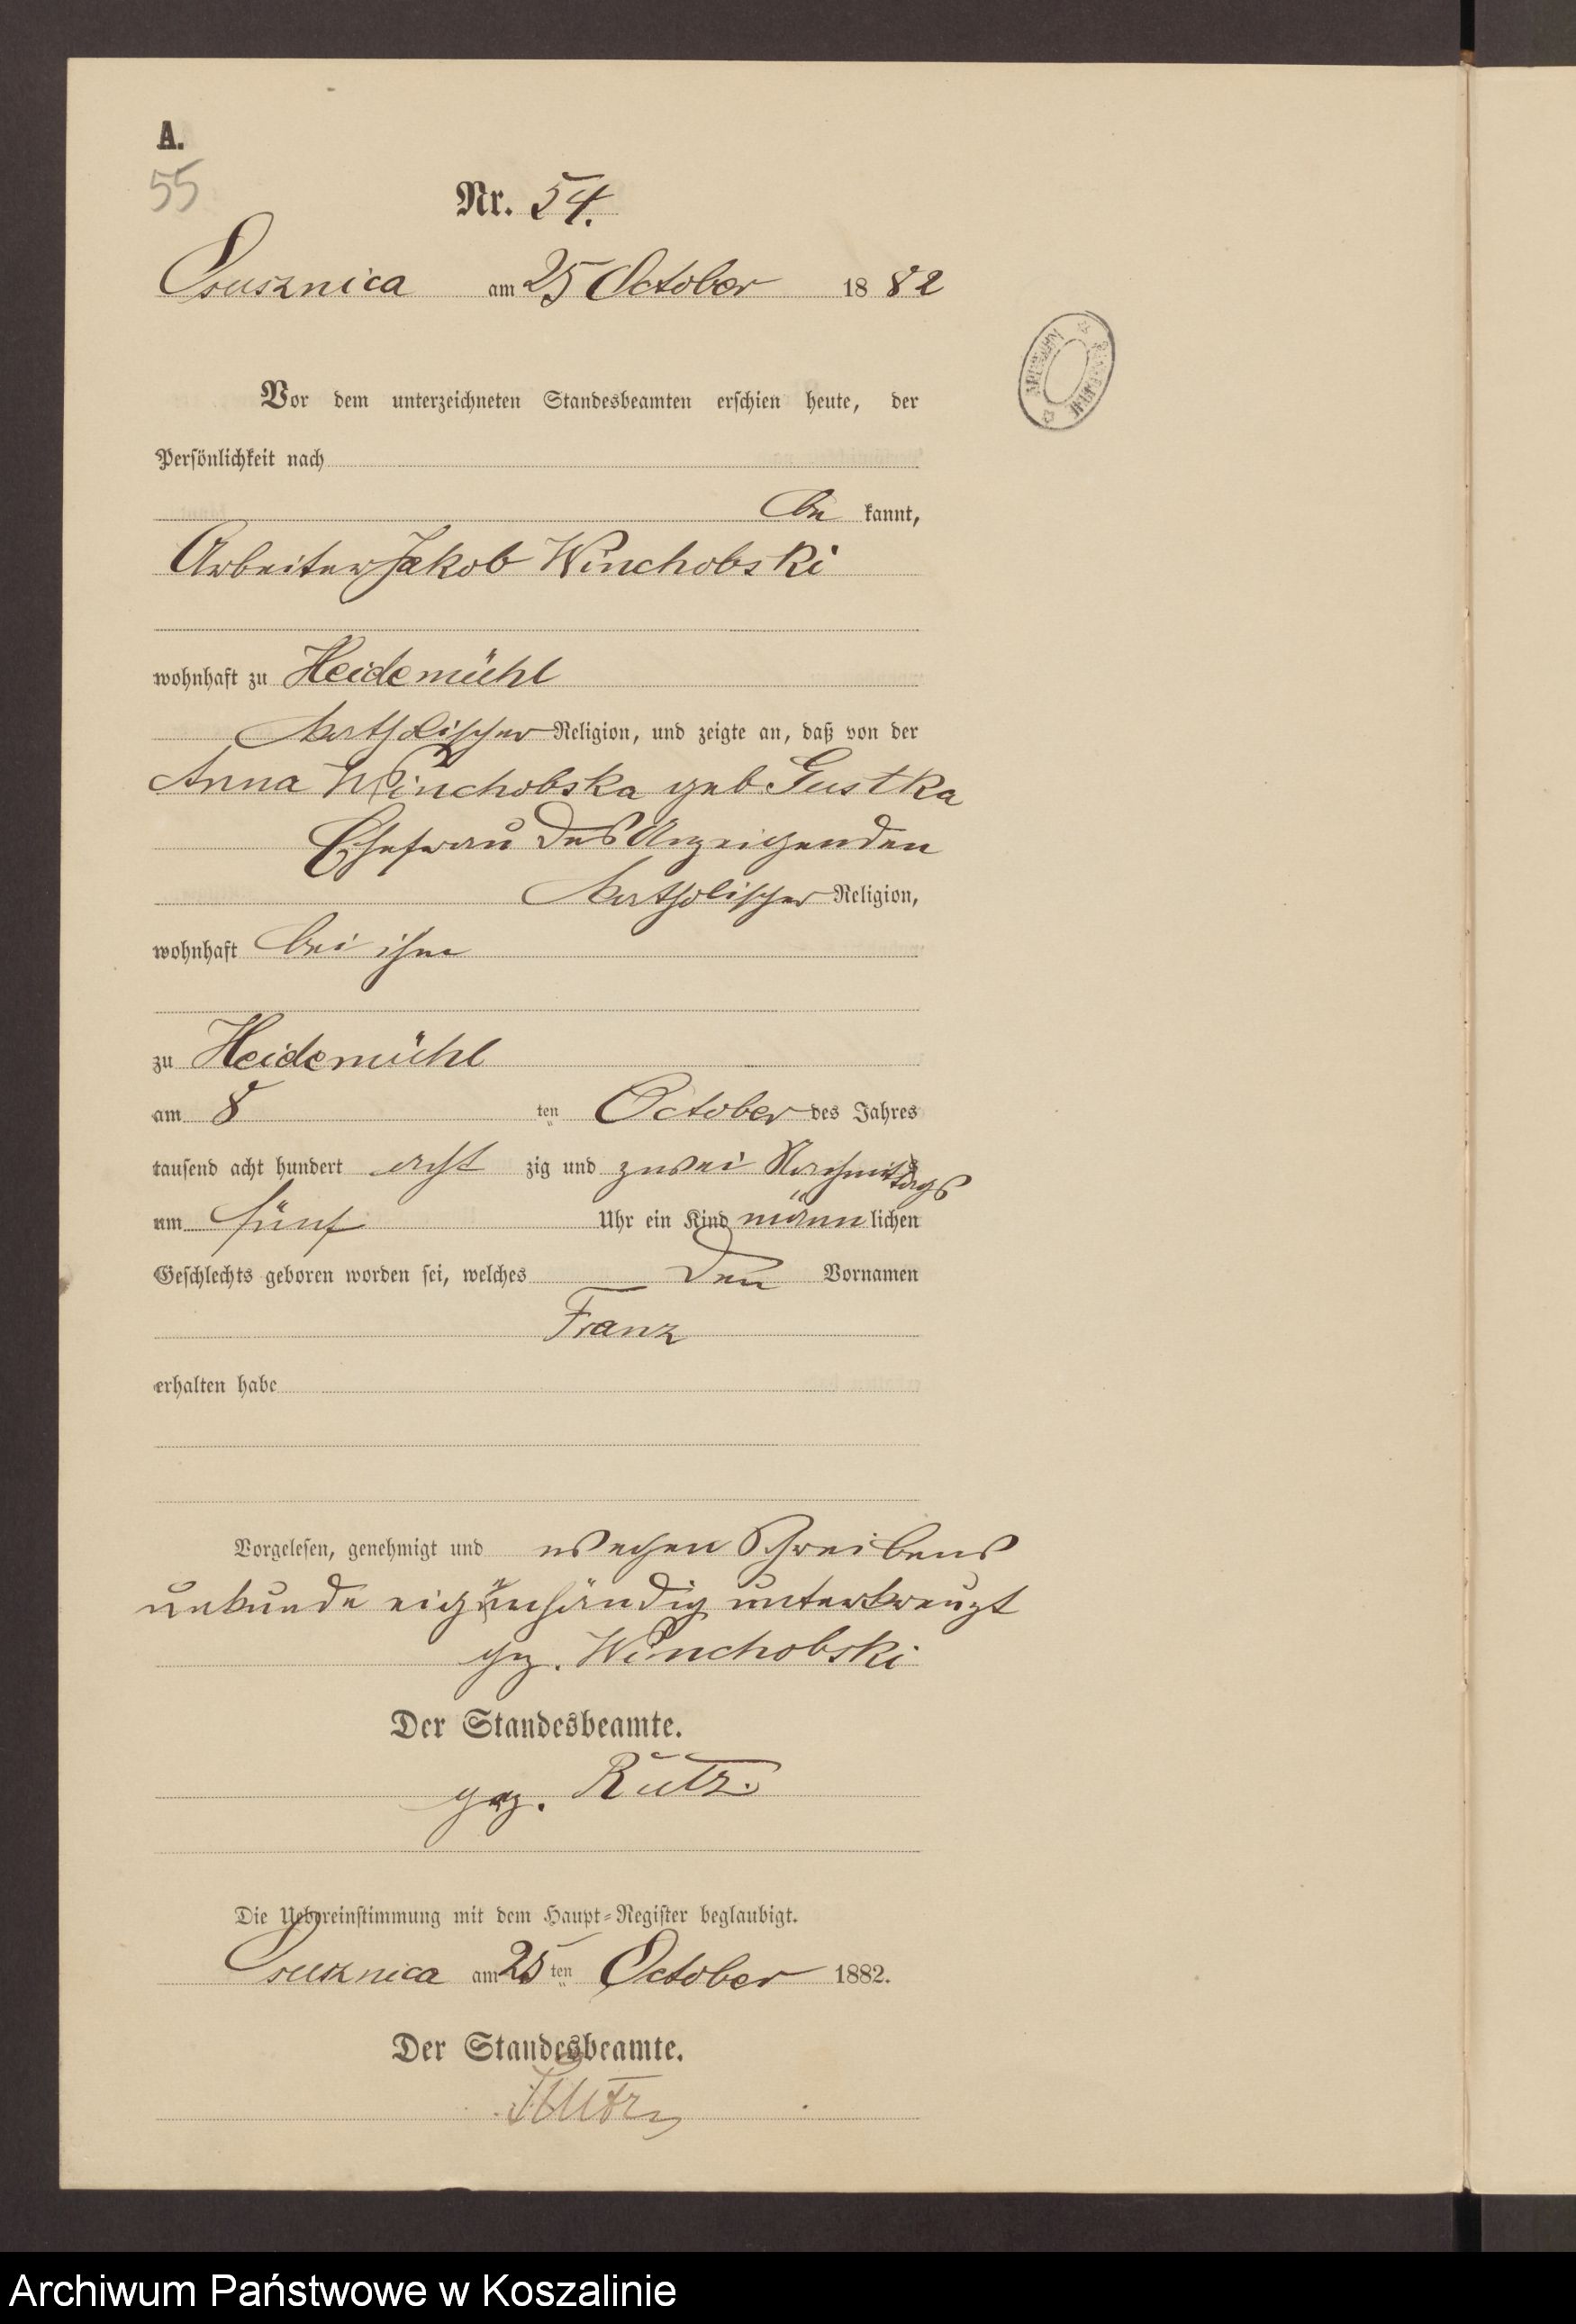 A.
55
Nr. 54.
Osusznica am 25 October 1882
Vor dem unterzeichneten Standesbeamten erschien heute, der
Persönlichkeit nach
be kannt,
Arbeiter Jakob Winchobski
wohnhaft zu Heidemühl
katholischer Religion, und zeigte an, daß von der
Anna Winchobska geb Gustka
Ehefrau des Anzeigenden
katholischer Religion,
wohnhaft bei ihm
zu Heidemühl
am 8 ten October des Jahres
tausend acht hundert acht zig und zwei Nachmittags
um fünf Uhr ein Kind männlichen
Geschlechts geboren worden sei, welches den Vornamen
Franz
erhalten habe
Vorgelesen, genehmigt und wegen Schreibens
unkunde eigenhändig unterkreuzt
gez. Winchobski
Der Standesbeamte.
gez. Rutz.
Die Uebereinstimmung mit dem Haupt-Register beglaubigt.
Osusznica am 25 ten October 1882.
Der Standesbeamte.
Rutz
Archiwum Państwowe w Koszalinie